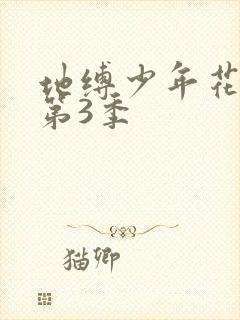 地缚少年花
第3季
猫卿